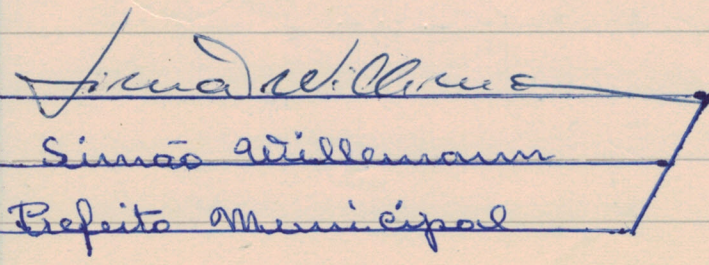 Simão Willemann
Simão Willemann
Prefeito Municipal